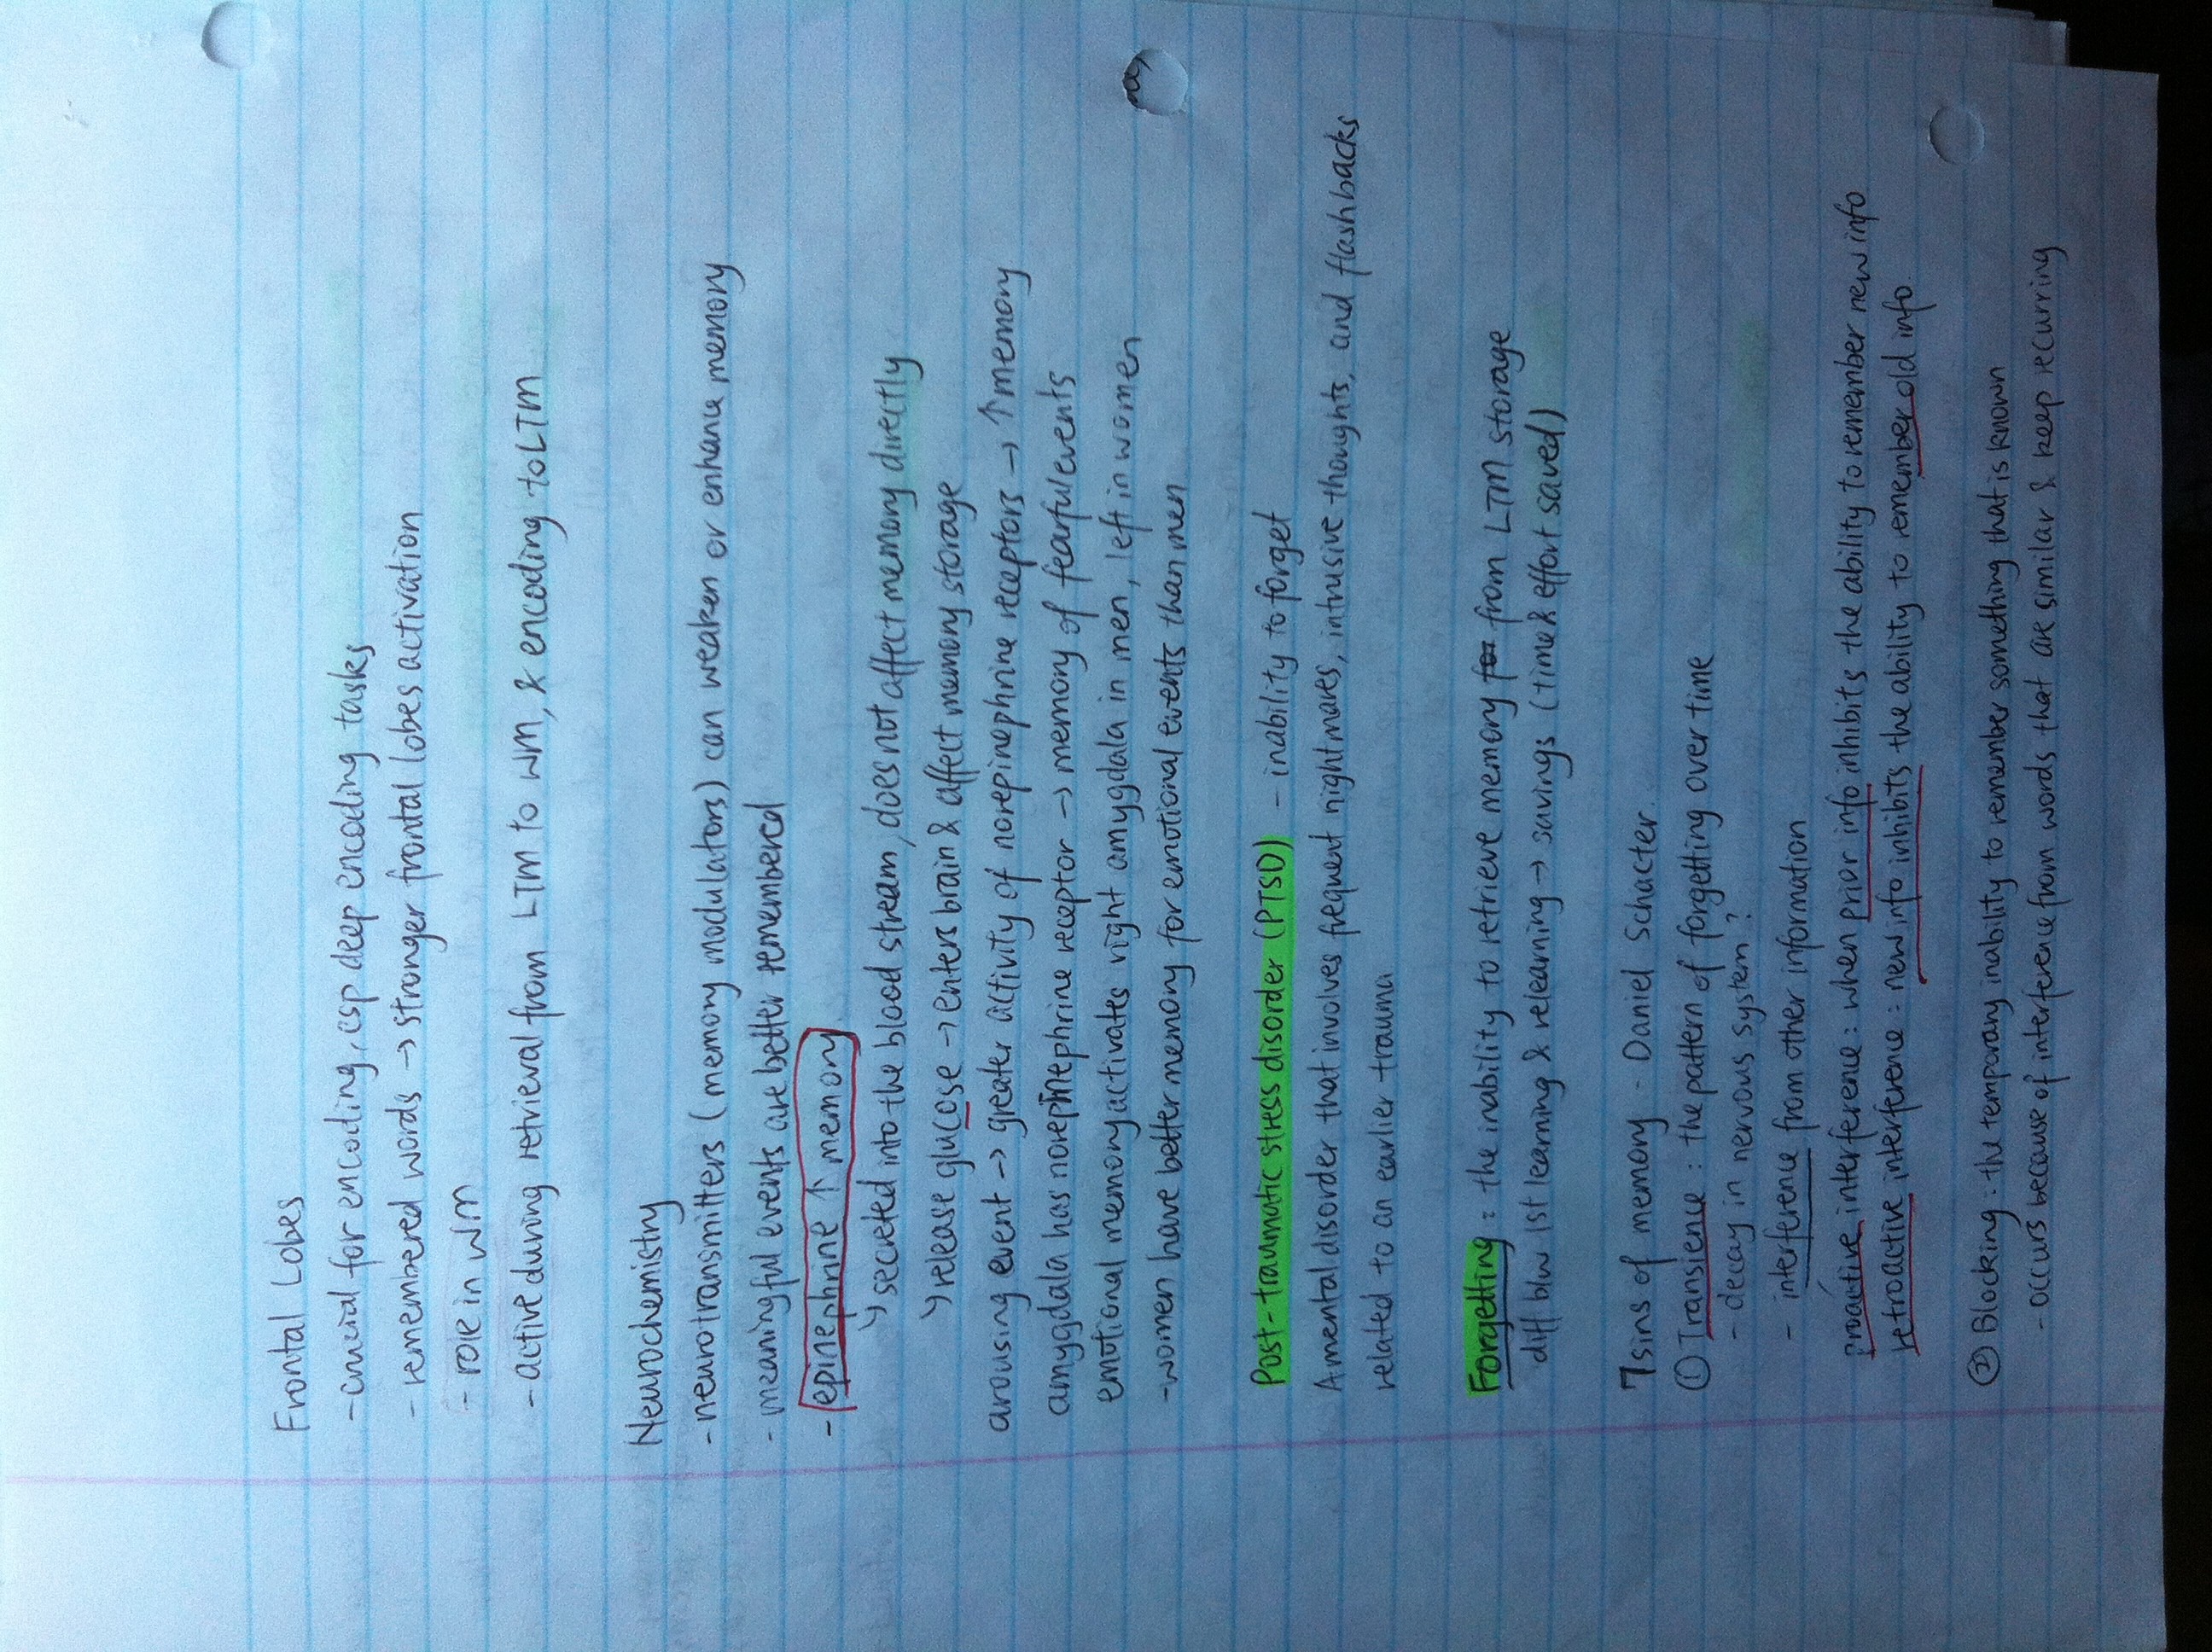 Frontal Lobes
- crucial for encoding, esp deep encoding tasks
- remembered words → stronger frontal lobes activation
- role in WM
- active during retrieval from LTM to WM, & encoding to LTM
Neurochemistry
- neurotransmitters (memory modulators) can weaken or enhance memory
- meaningful events are better remembered
- epinephrine ↑ memory
↳ secreted into the blood stream, does not affect memory directly
↳ release glucose → enters brain & affect memory storage
arousing event → greater activity of norepinephrine receptors → ↑ memory
amygdala has norepinephrine receptor → memory of fearful events
emotional memory activates right amygdala in men, left in women
- women have better memory for emotional events than men
Post-traumatic stress disorder (PTSD) - inability to forget
A mental disorder that involves frequent nightmares, intrusive thoughts, and flashbacks
related to an earlier trauma
Forgetting: the inability to retrieve memory from LTM storage
diff b/w 1st learning & relearning → savings (time & effort saved)
7 sins of memory - Daniel Schacter
① Transience: the pattern of forgetting over time
- decay in nervous system?
- interference from other information
proactive interference: when prior info inhibits the ability to remember new info
retroactive interference: new info inhibits the ability to remember old info
② Blocking: the temporary inability to remember something that is known
- occurs because of interference from words that are similar & keep recurring